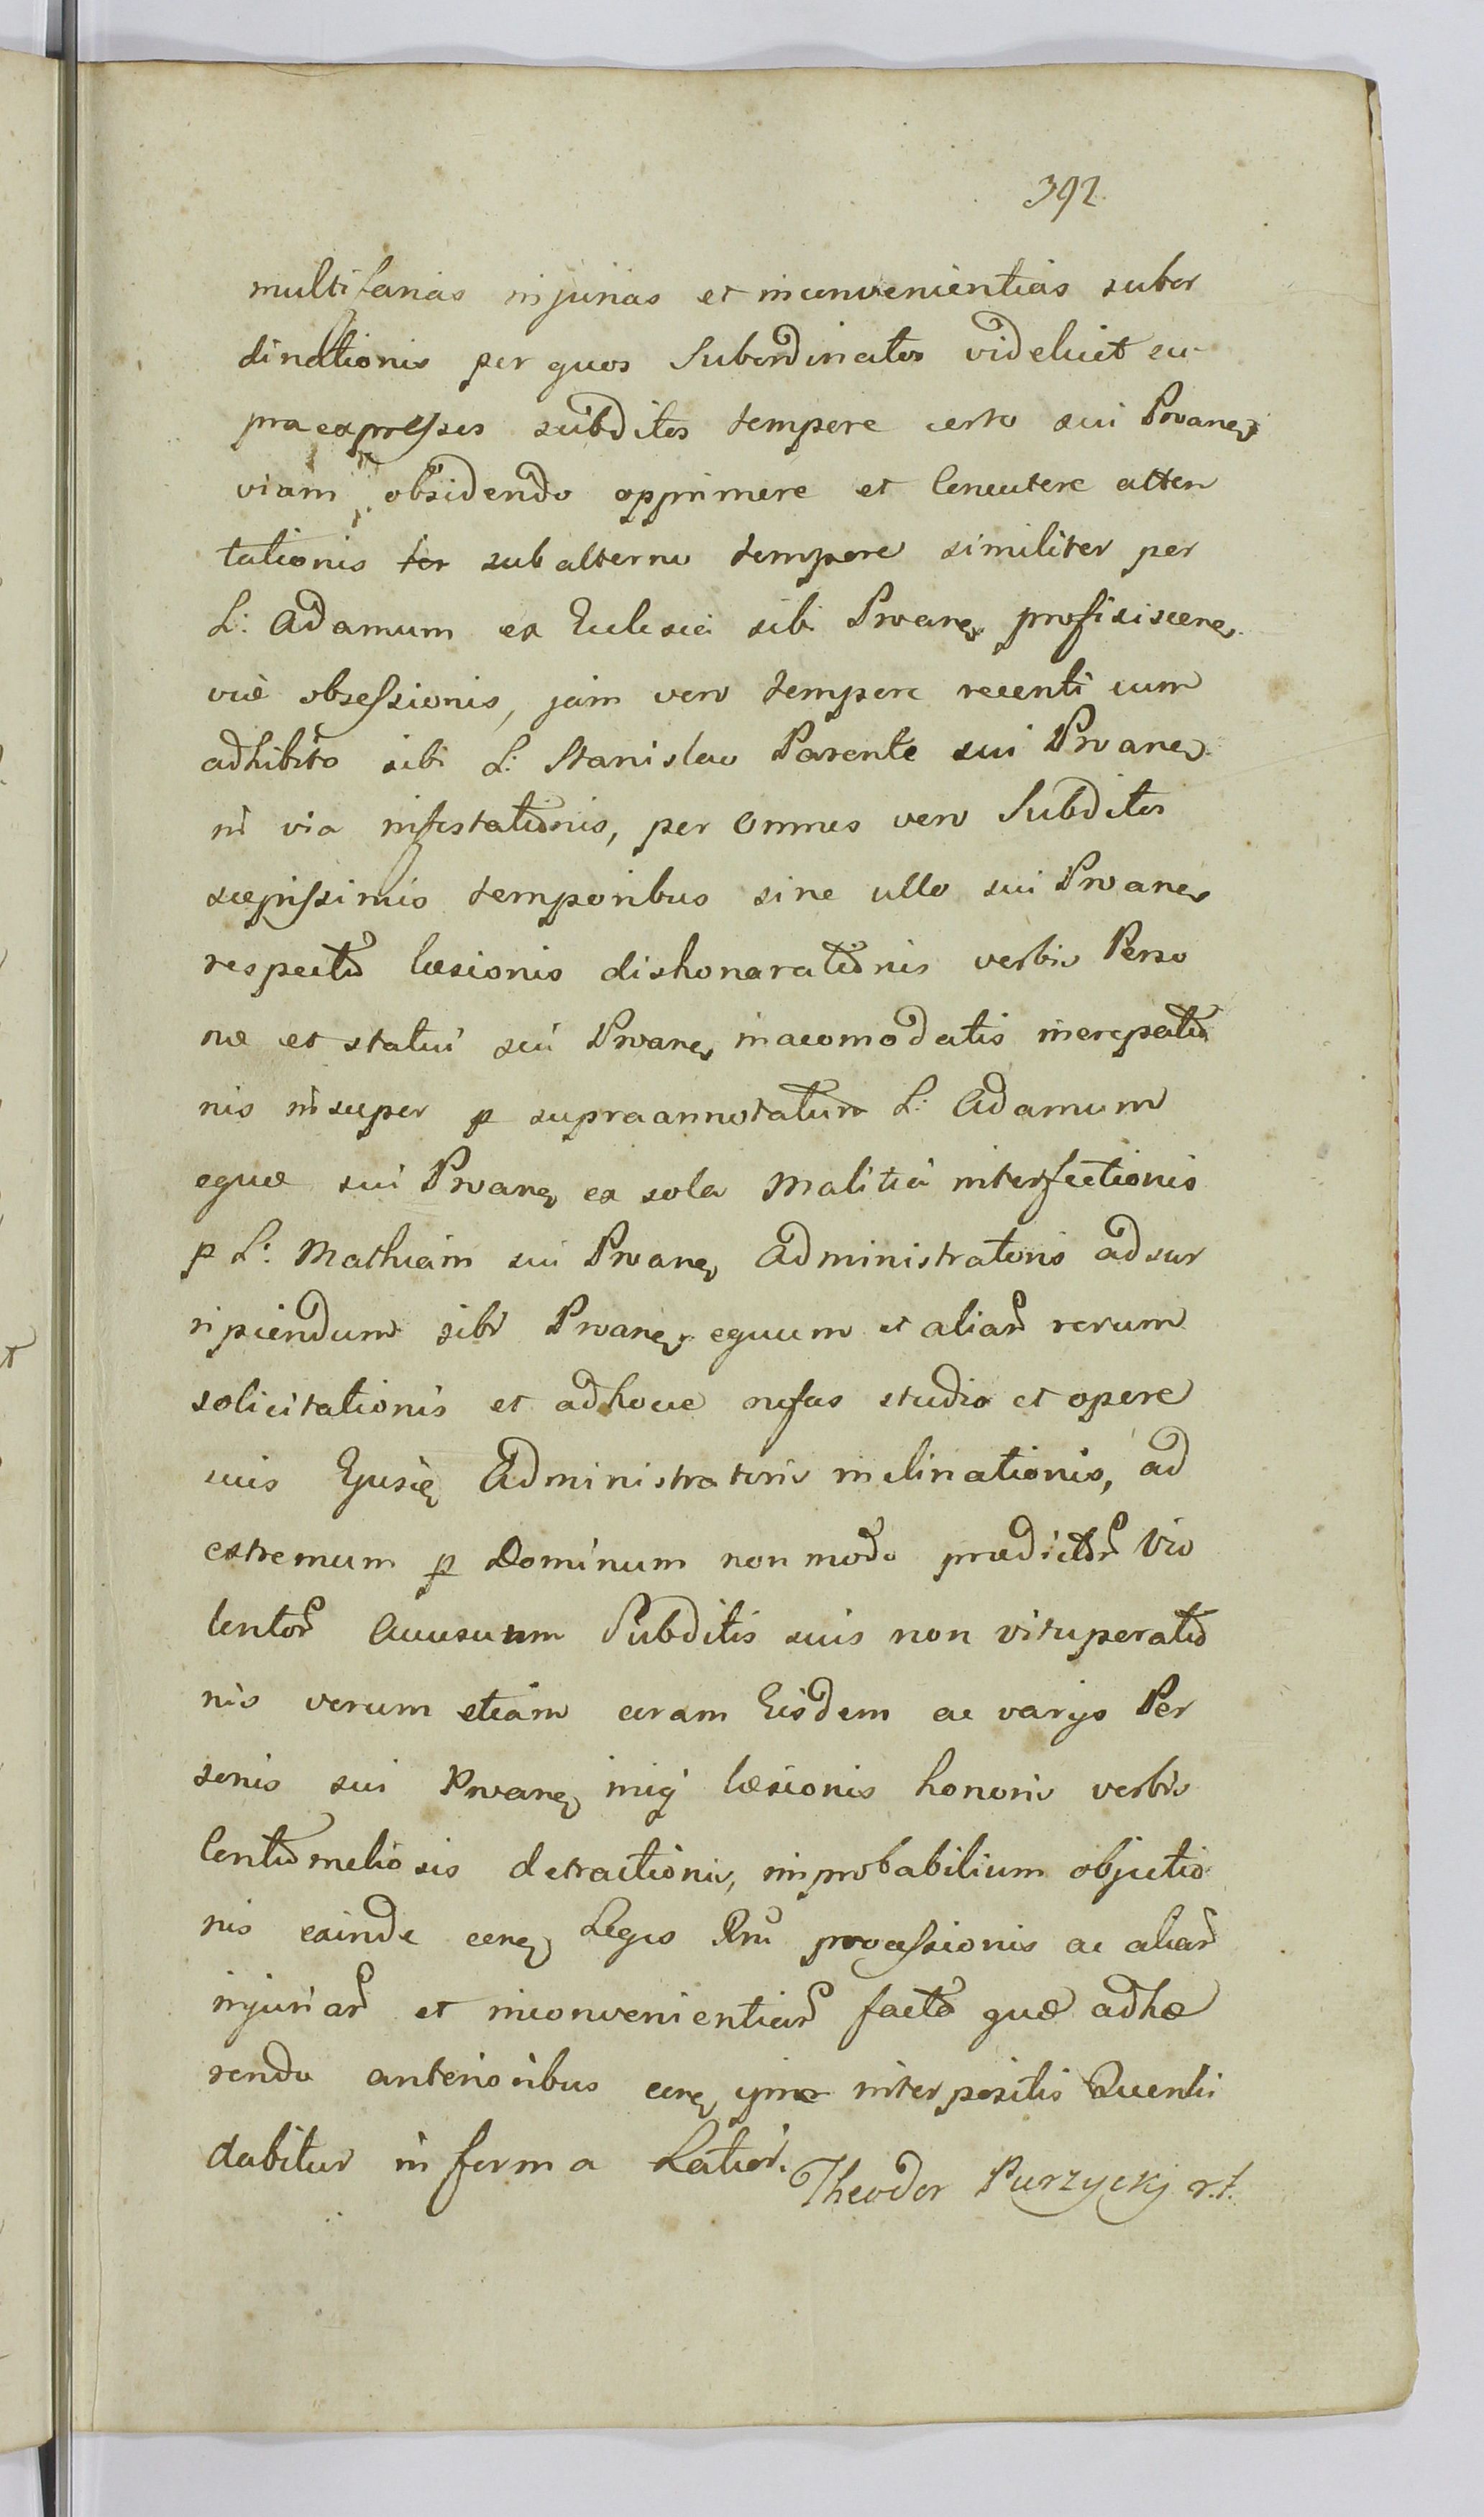 392
multifarias injurias et inconvenientias subor
dinationis per quos Subordinatos videlicet su-
praexpresses subditos tempore certo sui Provane
viam obsidendo opprimere et Concutere atten
tationis ter subalterno tempore similiter per
L: Adamum ex Eclesia sibi Provane profisiscene
viæ obsessionis, jam vero tempore recenti cum
adhibito sibi L: Stanislao Parente sui Provane
in via infestationis, per omnes vero Subditos
sæpissimis temporibus sine ullo sui Provane
respectu læsionis dishonorationis verbis Perso
næ et statui sui Provane inacomodatis increpatio
nis insuper p supraannotatum L: Adamum
equæ sui Provane ex sola Malitia interfectionis
p L: Mathiam sui Provane Administratoris ad sur
ripiendum sibi Provane equum et aliar rerum
solicitationis et adhocce nefas studio et opere
suis Ejusde Administratoris inclinationis, ad
extremum p Dominum non modo prædictor Vio
lentor Ausuum Subditis suis non vituperatio
nis verum etiam coram Eisdem ac varijs Per
sonis sui Provane læsionis honoris verbis
Contumeliosis detractionis, improbabilium objectio
nis exinde Legis Rni processionis ac aliar
injuriar et inconvenientiar facto quæ adhæ
rendo anterioribus interpositis Querelis
dabitur in forma Latior.
Theodor Purzyckj r.t.